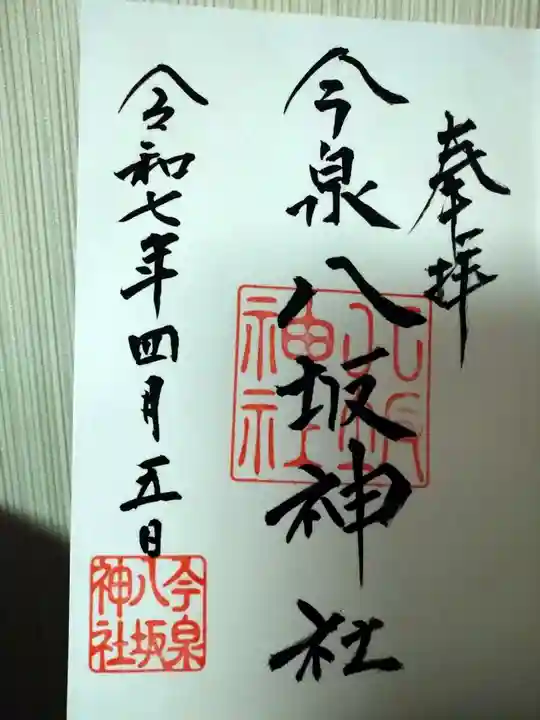 奉拝
今泉八坂神社
八坂
神社
令和七年四月五日
今泉
八坂
神社